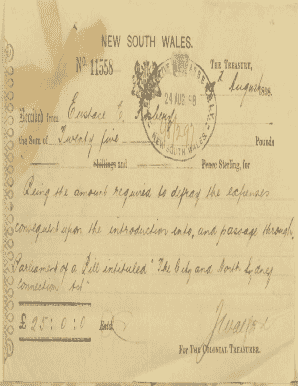 NEW SOUTH WALES.
No. 11558
THE TREASURY,
August
24 AUG
NEW SOUTH WALES
Received from Eustace
the Sum of Twenty five Pounds
shillings and Pence Sterling, for
Being the amount required to defray the expenses
consequent upon the introduction into, and passage through
Parliament of a Bill intituled "The City and North Sydney
Connection Act"
£ 25 : 0 : 0
FOR THE COLONIAL TREASURER.